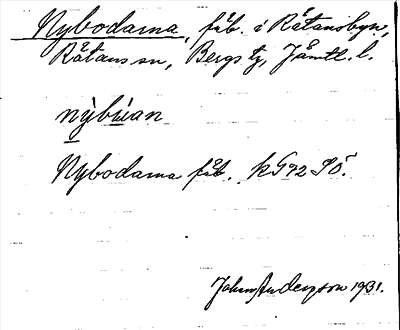 Nybodarna, fäb. i Rätansbyn,
Rätans sn, Bergs tg, Jämtl. l.
nỳbúan
Nybodarna fäb. kG92 SÖ.
Johan Anderson 1931.